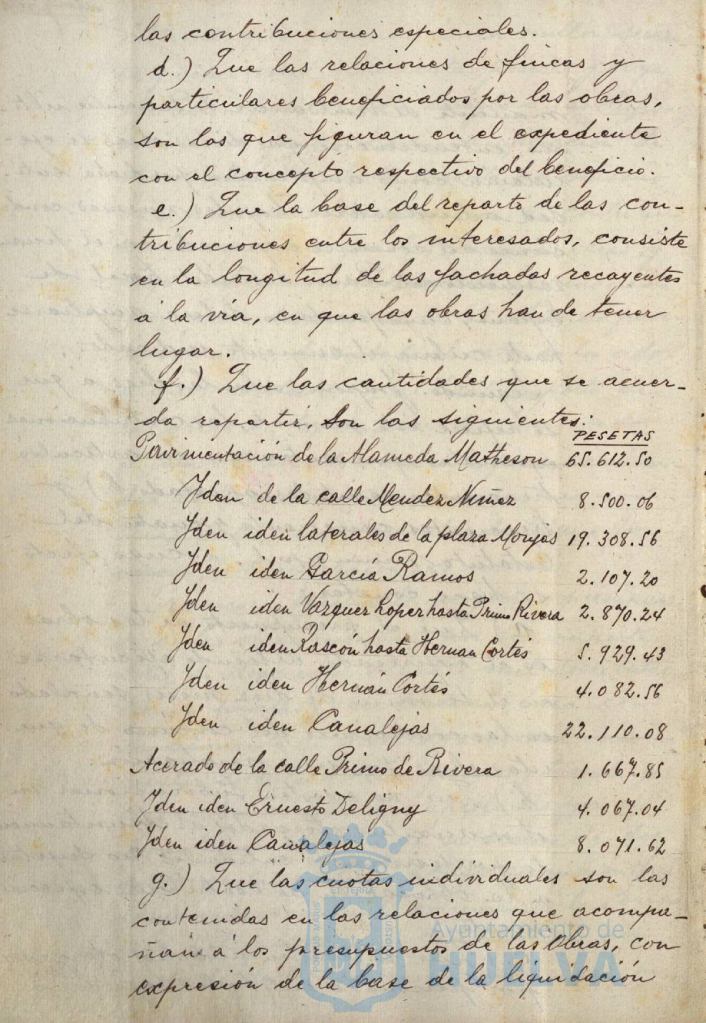 las contribuciones especiales.
d.) Que las relaciones de fincas y
particulares beneficiados por las obras,
son las que figuran en el expediente
con el concepto respectivo del beneficio.
e.) Que la base del reparto de las con-
tribuciones entre los interesados, consiste
en la longitud de las fachadas recayentes
a la vía, en que las obras han de tener
lugar.
f.) Que las cantidades que se acuer-
da repartir, son las siguientes:
PESETAS
Pavimentación de la Alameda Matheson 65.612.50
Iden de la calle Mendez Nuñez 8.500.06
Iden iden laterales de la plaza Monjas 19.308.56
Iden iden García Ramos 2.107.20
Iden iden Vazquez Lopez hasta Primo Rivera 2.870.24
Iden iden Rascón hasta Hernan Cortés 5.929.43
Iden iden Hernán Cortés 4.082.56
Iden iden Canalejas 22.110.08
Acerado de la calle Primo de Rivera 1.667.85
Iden iden Ernesto Deligny 4.067.04
Iden iden Canalejas 8.071.62
g.) Que las cuotas individuales son las
contenidas en las relaciones que acompa-
ñan a los presupuestos de las Obras, con
expresión de la base de la liquidación
Ayuntamiento de
HUELVA